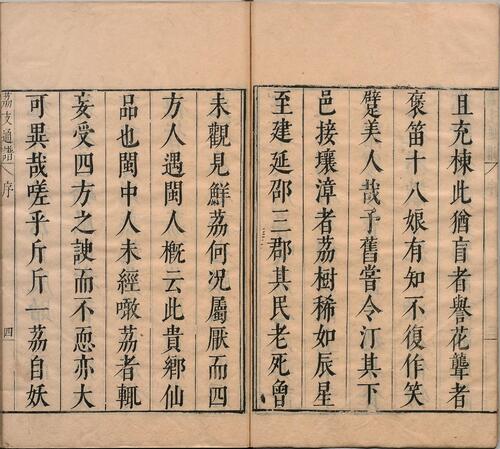 且充棟此猶盲者譽花聾者
褒笛十八娘有知不復作笑
躄美人哉予舊嘗令汀其下
邑接壤漳者荔樹稀如辰星
至建延邵三郡其民老死曾
未觀見鮮荔何况屬厭而四
方人遇閩人概云此貴鄉仙
品也閩中人未經噉荔者輒
妄受四方之諛而不恧亦大
可異哉嗟乎斤斤一荔自妖
荔支通譜 序 四